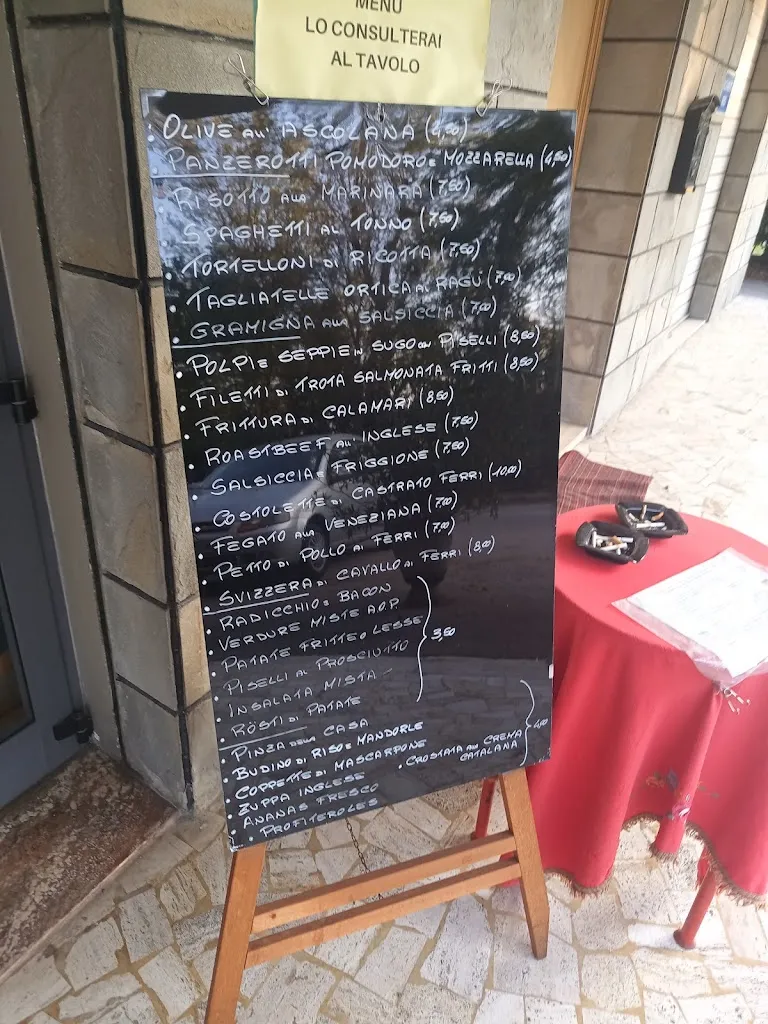 MENU
LO CONSULTERAI
AL TAVOLO
• OLIVE ALL' ASCOLANA (4,50)
• PANZEROTTI POMODORO E MOZZARELLA (4,50)
• RISOTTO ALLA MARINARA (7,50)
• SPAGHETTI AL TONNO (7,50)
• TORTELLONI DI RICOTTA (7,50)
• TAGLIATELLE ORTICA AL RAGÙ (7,00)
• GRAMIGNA ALLA SALSICCIA (7,00)
• POLPI E SEPPIE IN SUGO CON PISELLI (8,50)
• FILETTI DI TROTA SALMONATA FRITTI (8,50)
• FRITTURA DI CALAMARI (8,50)
• ROASTBEEF ALL' INGLESE (7,50)
• SALSICCIA E FRIGGIONE (7,50)
• COSTOLETTE DI CASTRATO FERRI (10,00)
• FEGATO ALLA VENEZIANA (7,00)
• PETTO DI POLLO AI FERRI (7,00)
• SVIZZERA DI CAVALLO AI FERRI (8,00)
• RADICCHIO E BACON
• VERDURE MISTE A.O.P.
• PATATE FRITTE O LESSE
• PISELLI AL PROSCIUTTO 3,50
• INSALATA MISTA
• RÖSTI DI PATATE
• PINZA DELLA CASA
• BUDINO DI RISO E MANDORLE 4,00
• COPPETTE DI MASCARPONE • CROSTATA ALLA CREMA
CATALANA
• ZUPPA INGLESE
• ANANAS FRESCO
• PROFITEROLES